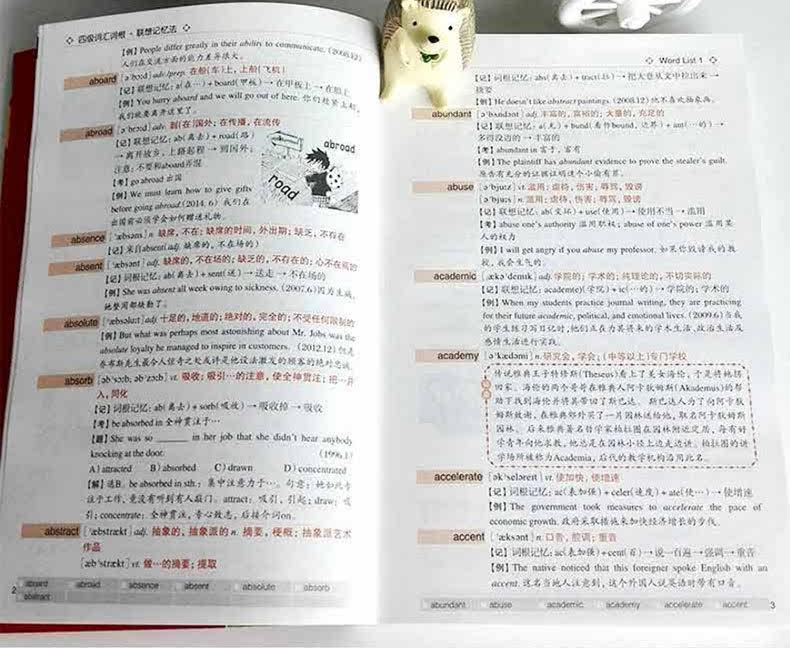 四级词汇词根·联想记忆法
【例】People differ greatly in their ability to communicate. (2008.12)
人们在交流方面的能力差异很大。
aboard [ə'bɔːd] adv./prep. 在船(车)上, 上船(飞机)
【记】联想记忆: a(在…) + board(甲板) → 在甲板上 → 在船上
【例】You hurry aboard and we will go out of here. 你们赶紧上船,
我们就要离开这里了。
abroad [ə'brɔːd] adv. 到(在)国外; 在传播, 在流传
【记】联想记忆: ab(离去) + road(路)
→ 离开故乡, 上路起程 → 到国外;
注意: 不要和aboard弄混
【考】go abroad 出国
【例】We must learn how to give gifts
before going abroad.(2014.6) 我们在
出国前必须学会如何赠送礼物。
abroad
road
absence ['æbsəns] n. 缺席, 不在; 缺席的时间, 外出期; 缺乏, 不存在
【记】来自absent(adj. 缺席的, 不在场的)
absent ['æbsənt] adj. 缺席的, 不在场的; 缺乏的, 不存在的; 心不在焉的
【记】词根记忆: ab(离去) + sent(送) → 送走 → 不在场的
【例】She was absent all week owing to sickness. (2007.6)因为生病,
她整周都缺勤了。
absolute ['æbsəluːt] adj. 十足的, 地道的; 绝对的, 完全的; 不受任何限制的
【例】But what was perhaps most astonishing about Mr. Jobs was the
absolute loyalty he managed to inspire in customers. (2012.12) 但是
乔布斯先生最令人惊奇之处或许是他设法激发的顾客的绝对忠诚。
absorb [əb'sɔːb, əb'zɔːb] vt. 吸收; 吸引…的注意, 使全神贯注; 把…并
入, 同化
【记】词根记忆: ab(离去) + sorb(吸收) → 吸收掉 → 吸收
【考】be absorbed in 全神贯注于…
【题】She was so ______ in her job that she didn't hear anybody
knocking at the door. (1996.1)
A) attracted B) absorbed C) drawn D) concentrated
【解】选B。be absorbed in sth.: 集中注意力于…。句意: 她如此专
注于工作, 竟没有听到有人敲门。attract: 吸引, 引起; draw: 吸
引; concentrate: 全神贯注, 专心致志, 后接介词on。
abstract ['æbstrækt] adj. 抽象的, 抽象派的 n. 摘要, 梗概; 抽象派艺术
作品
[æb'strækt] vt. 做…的摘要; 提取
2 aboard abroad absence absent absolute absorb
abstract
Word List 1
【记】词根记忆: abs(离去) + tract(拉) → 把大意从文中拉出来 →
摘要
【例】He doesn't like abstract paintings. (2008.12)他不喜欢抽象画。
abundant [ə'bʌndənt] adj. 丰富的, 富裕的; 大量的, 充足的
【记】联想记忆: a(无) + bund(看作bound, 边界) + ant(…的) →
多得没边的 → 丰富的
【考】abundant in 富于, 富有
【例】The plaintiff has abundant evidence to prove the stealer's guilt.
原告有充分的证据证明这个小偷有罪。
abuse [ə'bjuːz] vt. 滥用; 虐待, 伤害; 辱骂, 毁谤
[ə'bjuːs] n. 滥用; 虐待, 伤害; 辱骂, 毁谤
【记】联想记忆: ab(变坏) + use(使用) → 使用不当 → 滥用
【考】abuse one's authority 滥用职权; abuse of one's power 滥用某
人的权力
【例】I will get angry if you abuse my professor. 如果你毁谤我的教
授, 我会生气的。
academic [ˌækə'demɪk] adj. 学院的; 学术的; 纯理论的, 不切实际的
【记】联想记忆: academe(学院) + ic(…的) → 学院的; 学术的
【例】When my students practice journal writing, they are practicing
for their future academic, political, and emotional lives. (2009.6)当我
的学生练习写日记时, 他们正在为其将来的学术生活、政治生活及
感情生活进行实践。
academy [ə'kædəmi] n. 研究会, 学会; (中等以上)专门学校
传说雅典王子特修斯(Theseus)看上了美女海伦, 于是将她拐
回家。海伦的两个哥哥在雅典人阿卡狄姆斯(Akademus)的帮
助下找到海伦并将其带回了斯巴达。斯巴达人为了向阿卡狄
姆斯致谢, 在雅典郊外买了一片园林送给他, 取名阿卡狄姆斯
园林。后来雅典著名哲学家柏拉图在园林附近定居, 每有好
学青年向他求教, 他总是在园林小径上边走边讲。柏拉图的讲
学场所被称为Academia, 后代的教学机构沿用此名。
accelerate [ək'seləreɪt] vt. 使加快, 使增速
【记】词根记忆: ac(表加强) + celer(速度) + ate(使…) → 使增速
【例】The government took measures to accelerate the pace of
economic growth. 政府采取措施来加快经济增长的步伐。
accent ['æksənt] n. 口音, 腔调; 重音
【记】词根记忆: ac(表加强) + cent(百) → 说一百遍 → 强调 → 重音
【例】The native noticed that this foreigner spoke English with an
accent. 这名当地人注意到, 这个外国人说英语时带有口音。
abundant abuse academic academy accelerate accent 3